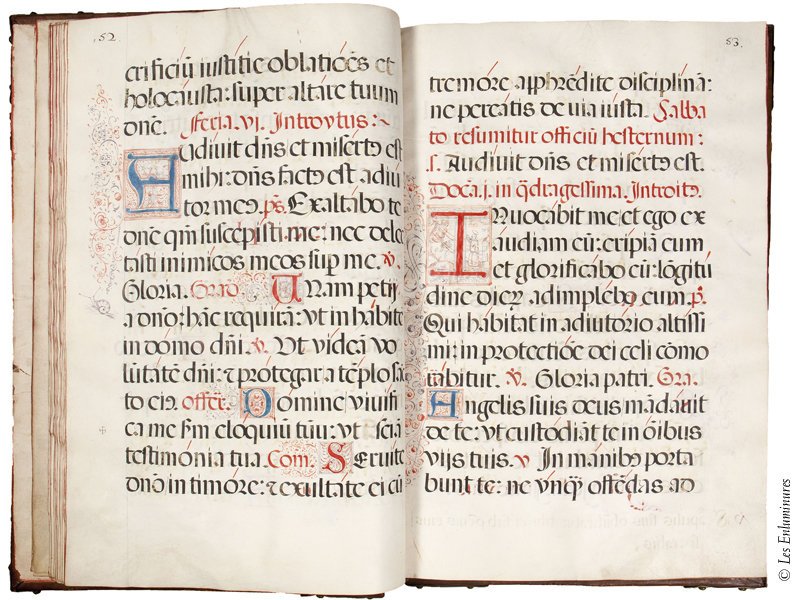 .52.
crificiũ iustitie oblatiões et
holocausta: super altare tuum
dñe. Feria .vi. Introytus:
Audiuit dñs et misertꝯ est
mihi: dñs factꝯ est adiu
tor meꝯ. ps. Exaltabo te
dñe qm̃ suscepisti me: nec dele
ctasti inimicos meos suꝑ me. ℣.
Gloria. Grad. Unam petij
a dño: hãc requirã: ut in habitẽ
in domo dñi. ℣. Ut videã vo
lũtatẽ dñi: ⁊ protegar a tẽplo sã
cto eiꝯ. offer̃. Domine viuifi
ca me s̃m eloquiũ tuũ: vt sciã
testimonia tua. Com. Seruite
dñ̃o in timore: ⁊ exultate ei cũ
53.
tremore apphr̃edite disciplinã:
ne pereatis de uia iusta. Sabba
to resumitur officiũ hesternum:
s. Audiuit dñs et misertꝯ est.
Dñ̃ca .i. in q̃dragessima. Introitꝯ.
INuocabit me, et ego ex
audiam eũ: eripiã eum
et glorificabo eũ: lõgitu
dine dierꝝ adimplebo eum. p̃.
Qui habitat in adiutorio altissi
mi: in protectiõe dei celi cõmo
rabitur. ℣. Gloria patri. Gra.
Angelis suis deus mãdauit
de te: vt custodiãt te in õibus
vijs tuis. v In manibꝯ porta
bunt te: ne vnq̃ offẽdas ad
© Les Enluminures